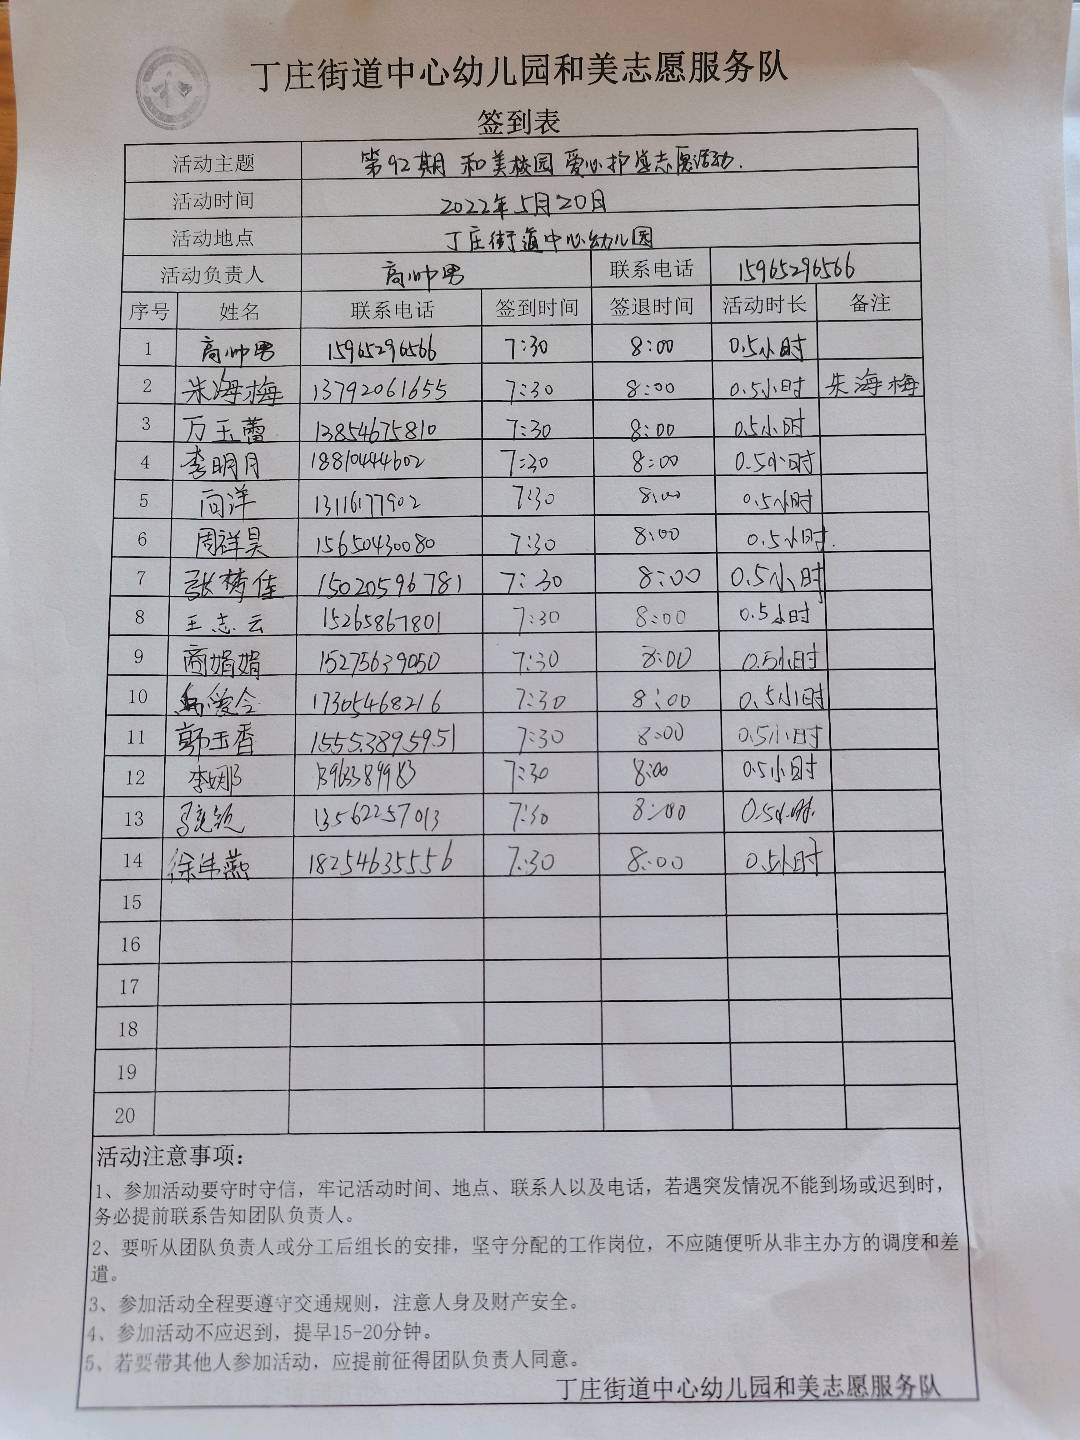 丁庄街道中心幼儿园和美志愿服务队
签到表
活动主题 第92期 和美校园 爱心护学志愿活动.
活动时间 2022年5月20日
活动地点 丁庄街道中心幼儿园
活动负责人 高帅男 联系电话 15965296566
序号 姓名 联系电话 签到时间 签退时间 活动时长 备注
1 高帅男 15965296566 7:30 8:00 0.5小时
2 朱海梅 13792061655 7:30 8:00 0.5小时 朱海梅
3 万玉蕾 13854675810 7:30 8:00 0.5小时
4 李明月 18810444602 7:30 8:00 0.5小时
5 向洋 13116177902 7:30 8:00 0.5小时
6 周祥昊 15650430080 7:30 8:00 0.5小时.
7 张梦佳 15020596781 7:30 8:00 0.5小时
8 王志云 15265867801 7:30 8:00 0.5小时
9 商娟娟 15275639050 7:30 8:00 0.5小时
10 17305468216 7:30 8:00 0.5小时
11 郭玉香 15553895951 7:30 8:00 0.5小时
12 李娜 7:30 8:00 0.5小时
13 13562257013 7:30 8:00 0.5小时
14 徐伟燕 18254635556 7:30 8:00 0.5小时
15
16
17
18
19
20
活动注意事项：
1、参加活动要守时守信，牢记活动时间、地点、联系人以及电话，若遇突发情况不能到场或迟到时，
务必提前联系告知团队负责人。
2、要听从团队负责人或分工后组长的安排，坚守分配的工作岗位，不应随便听从非主办方的调度和差
遣。
3、参加活动全程要遵守交通规则，注意人身及财产安全。
4、参加活动不应迟到，提早15-20分钟。
5、若要带其他人参加活动，应提前征得团队负责人同意。
丁庄街道中心幼儿园和美志愿服务队